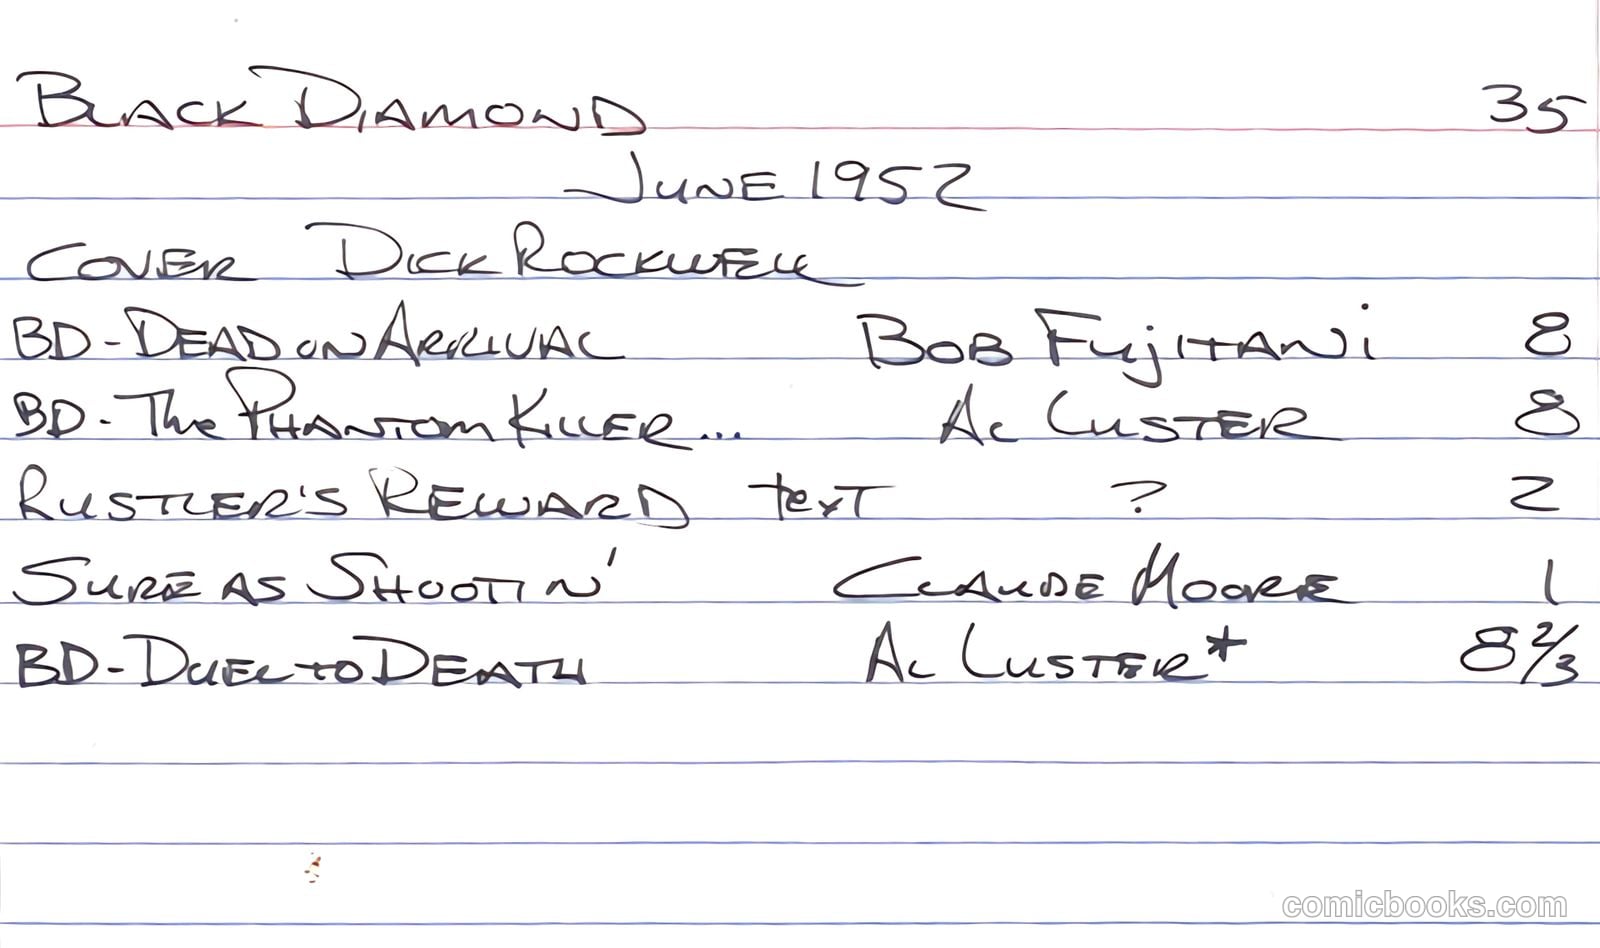 BLACK DIAMOND 35
JUNE 1952
COVER DICK ROCKWELL
BD-DEAD ON ARRIVAL BOB FUJITANI 8
BD-The PHANTOM KILLER... AL LUSTER 8
RUSTLER'S REWARD text ? 2
SURE AS SHOOTIN' CLAUDE MOORE 1
BD-DUEL TO DEATH AL LUSTER* 8 2/3
comicbooks.com